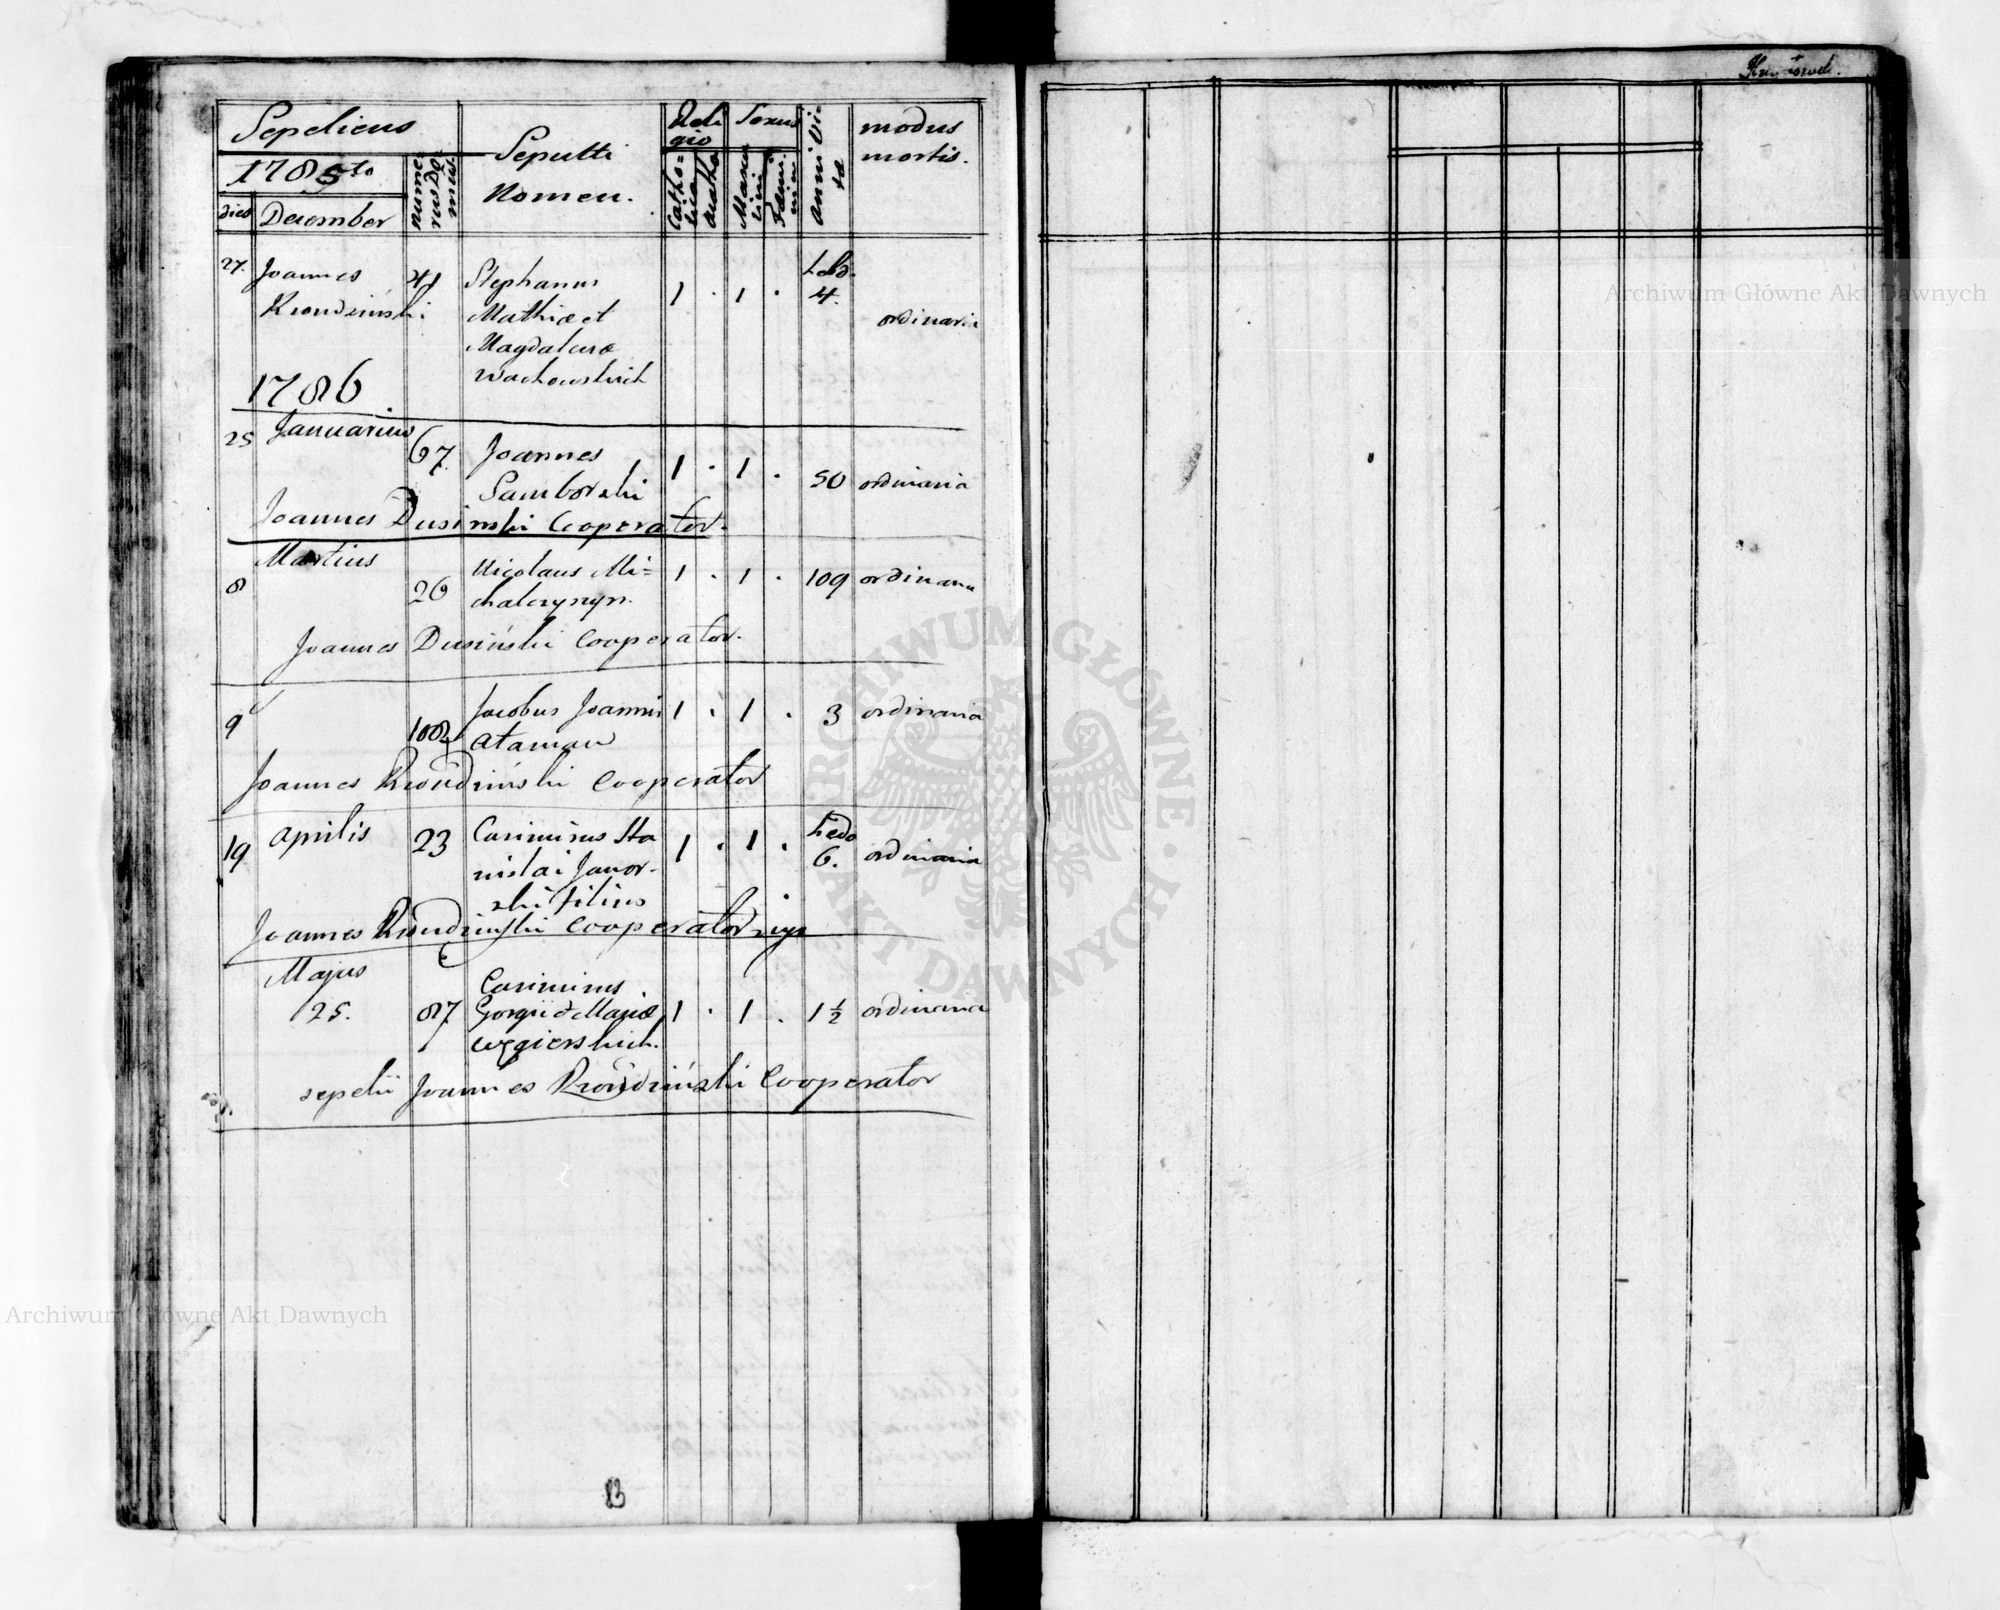 Sepeliens
1785to
dies December
numerus Domus
Sepulti
Nomen.
Religio
Catholica
Sexus
Masculini
Faeminini
Anni Vitae
modus
mortis.
27. Joannes 41 Stephanus 1 . 1 . 4. ordinaria
Mathiae et
Magdalenae
Wachowskich
1786
25 Januarius 67 Joannes 1 . 1 . 50 ordinaria
Samborski
Joannes Dusinski Cooperator.
Martius
8 26 Nicolaus Mi= 1 . 1 . 109 ordinaria
chalczyszyn.
Joannes Dusiński Cooperator.
9 108 Jacobus Joannis 1 . 1 . 3 ordinaria
Ataman
Joannes Cooperator
19 Aprilis 23 Casimirus Sta 1 . 1 . 6. ordinaria
nislai Jawor-
ski filius
Joannes Cooperator
Majus
25. 87 Casimirus
Gorgii et Mariae 1 . 1 . 1 1/2 ordinaria
Węgierskich.
sepelii Joannes Cooperator
13
Archiwum Główne Akt Dawnych
Archiwum Główne Akt Dawnych
ARCHIWUM GŁÓWNE · AKT DAWNYCH ·